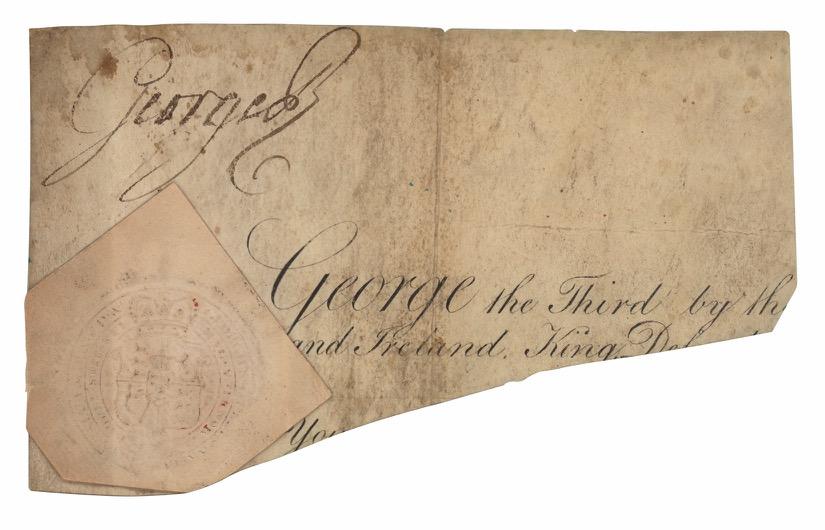 George R
George the Third by th
and Ireland, King, Def
You